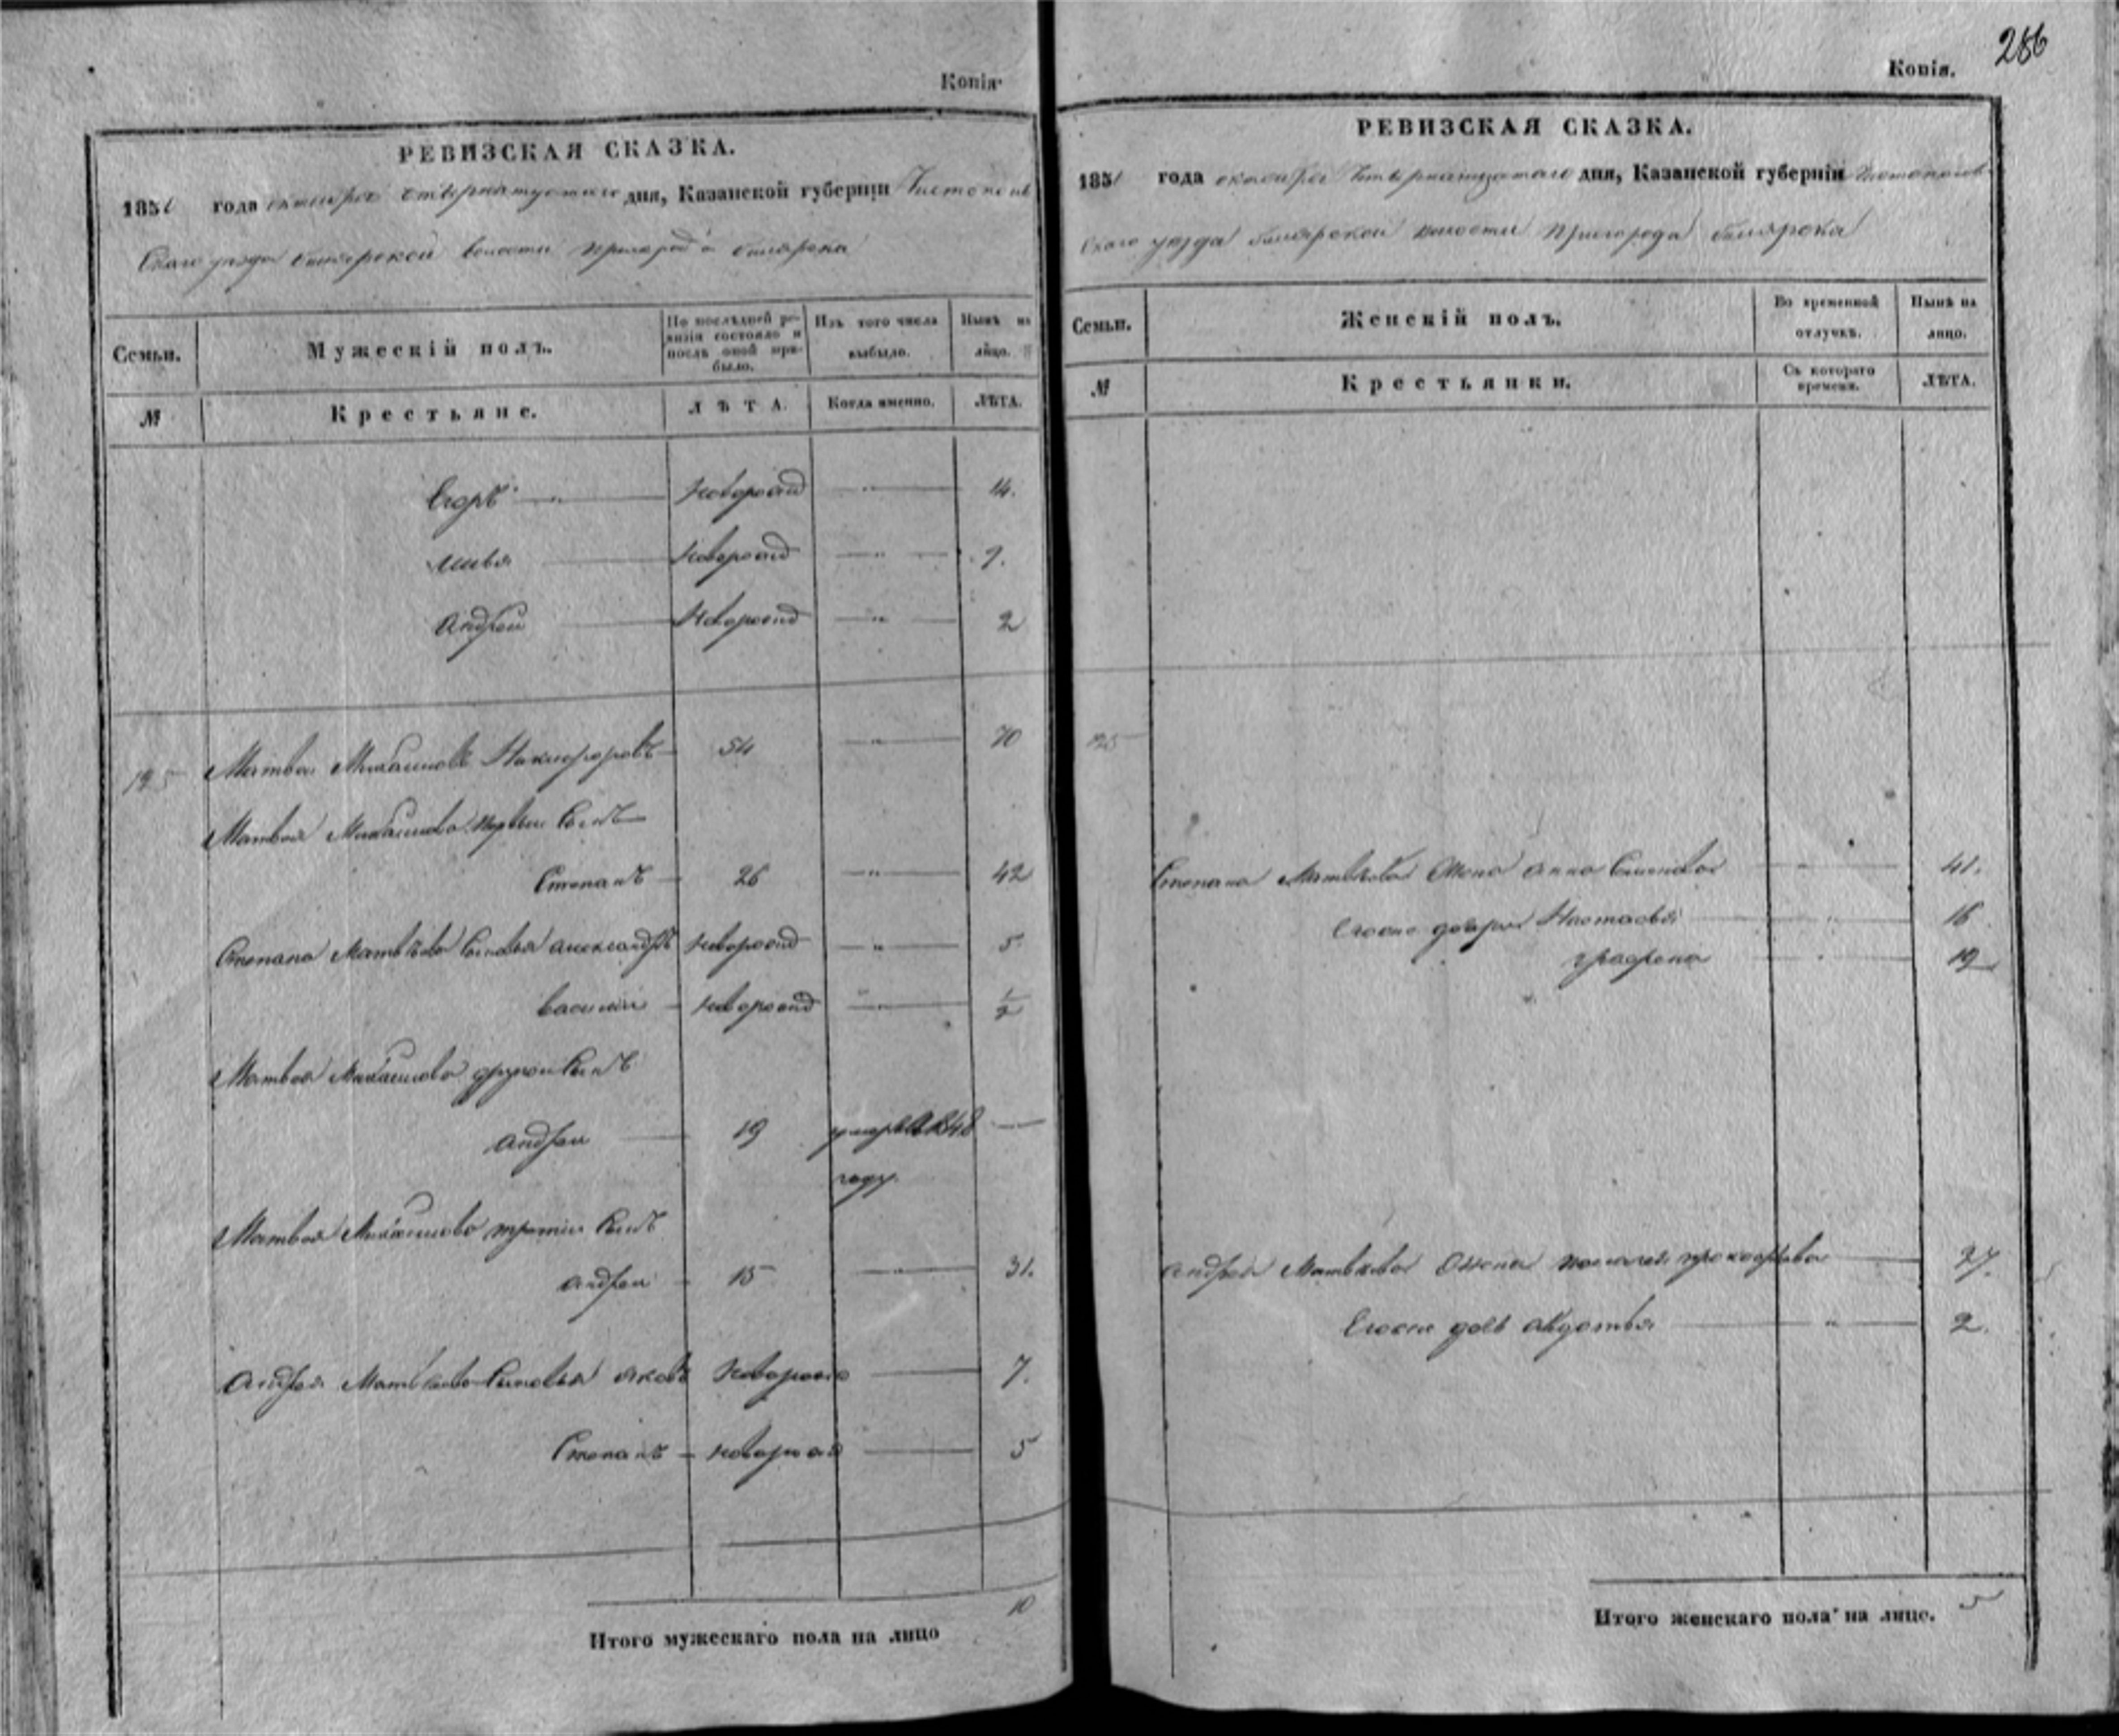 286
Копія.
РЕВИЗСКАЯ СКАЗКА.
185 года октября четырнадцатаго дня, Казанской губерніи Чистополь
скаго уѣзда билярской волости пригорода билярска
Семьи.
Мужескій полъ.
По послѣдней ре-
визіи состояло и
послѣ оной при-
было.
Изъ того числа
выбыло.
Нынѣ на
лицо.
№
Крестьяне.
ЛѢТА.
Когда именно.
ЛѢТА.
Егоръ — новорожд — 14.
новорожд — 9.
Андрей новорожд — 2
125 Матвей Михайловъ Никифоровъ 54 — 70
Матвея Михайлова первый Сынъ
Степанъ 26 — 42
Степана Матвѣева Сыновья александръ новорожд — 5
василий новорожд — 1/2
Матвея Михайлова другой Сынъ
андрей 19 умеръ в 1848 —
году
Матвея Михайлова третий Сынъ
андрей 15 — 31.
андрея Матвѣева Сыновья яковъ новорожд — 7.
Степанъ новорожд — 5
Итого мужескаго пола на лицо 10
Копія.
РЕВИЗСКАЯ СКАЗКА.
185 года октября четырнадцатаго дня, Казанской губерніи Чистополь
скаго уѣзда билярской волости пригорода билярска
Семьи.
Женскій полъ.
Во временной
отлучкѣ.
Нынѣ на
лицо.
№
Крестьянки.
Съ котораго
времени.
ЛѢТА.
125
Степана Матвѣева Жена анна — 41.
Его дочери Настасья — 16
аграфена — 12
андрея Матвѣева Жена прокофьева — 27.
Его дочь авдотья — 2.
Итого женскаго пола на лицо. 5